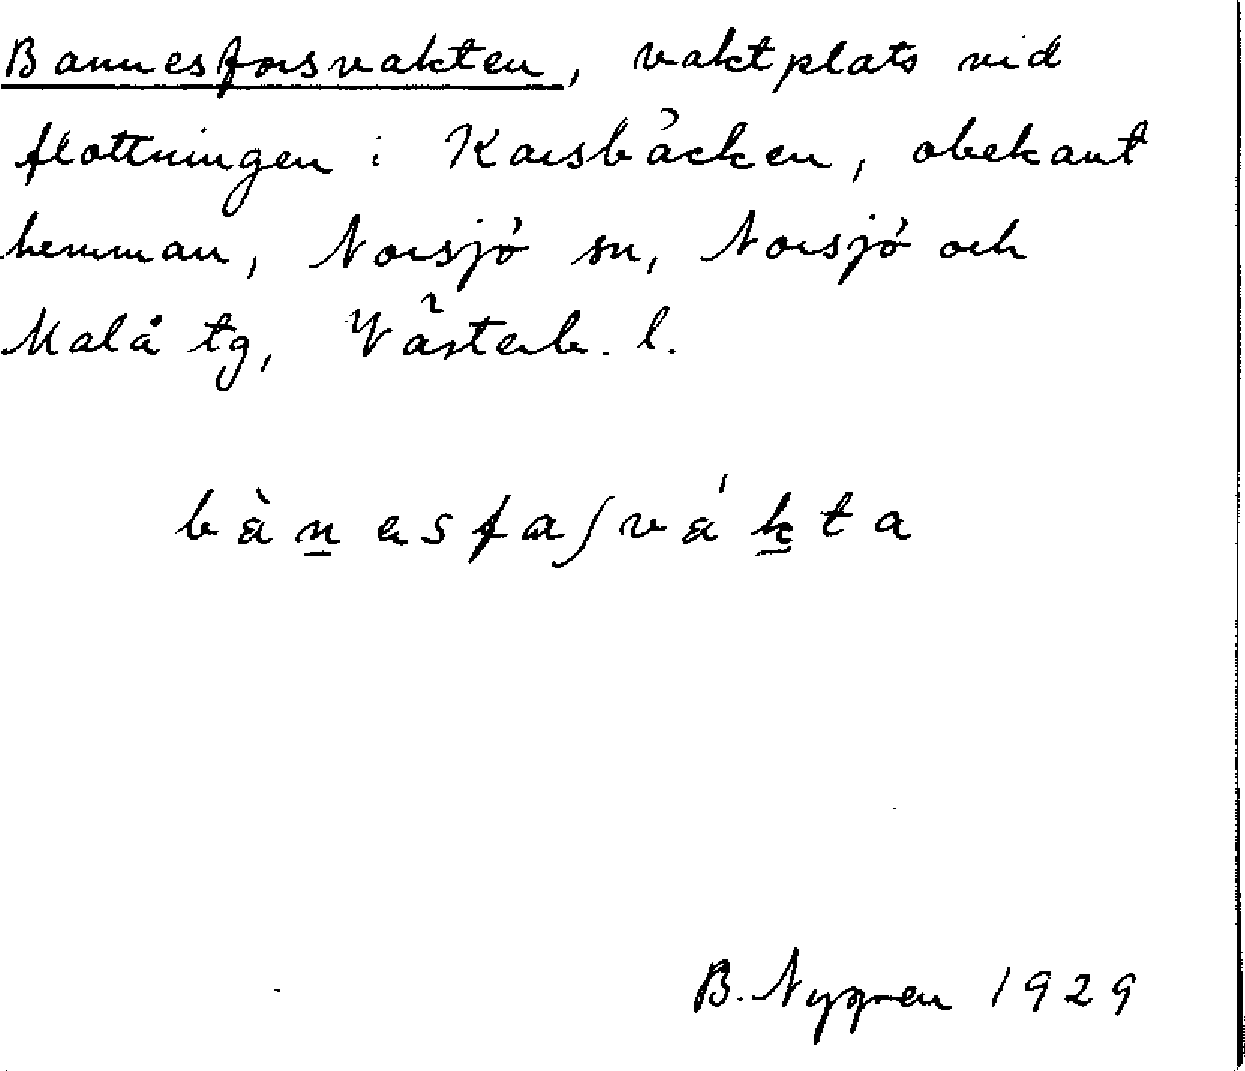 Bannesforsvakten, vaktplats vid
flottningen i Karsbäcken, obekant
hemman, Norsjö sn, Norsjö och
Malå tg, Västerb. l.
bànesfaʃvákta
B. Nygren 1929